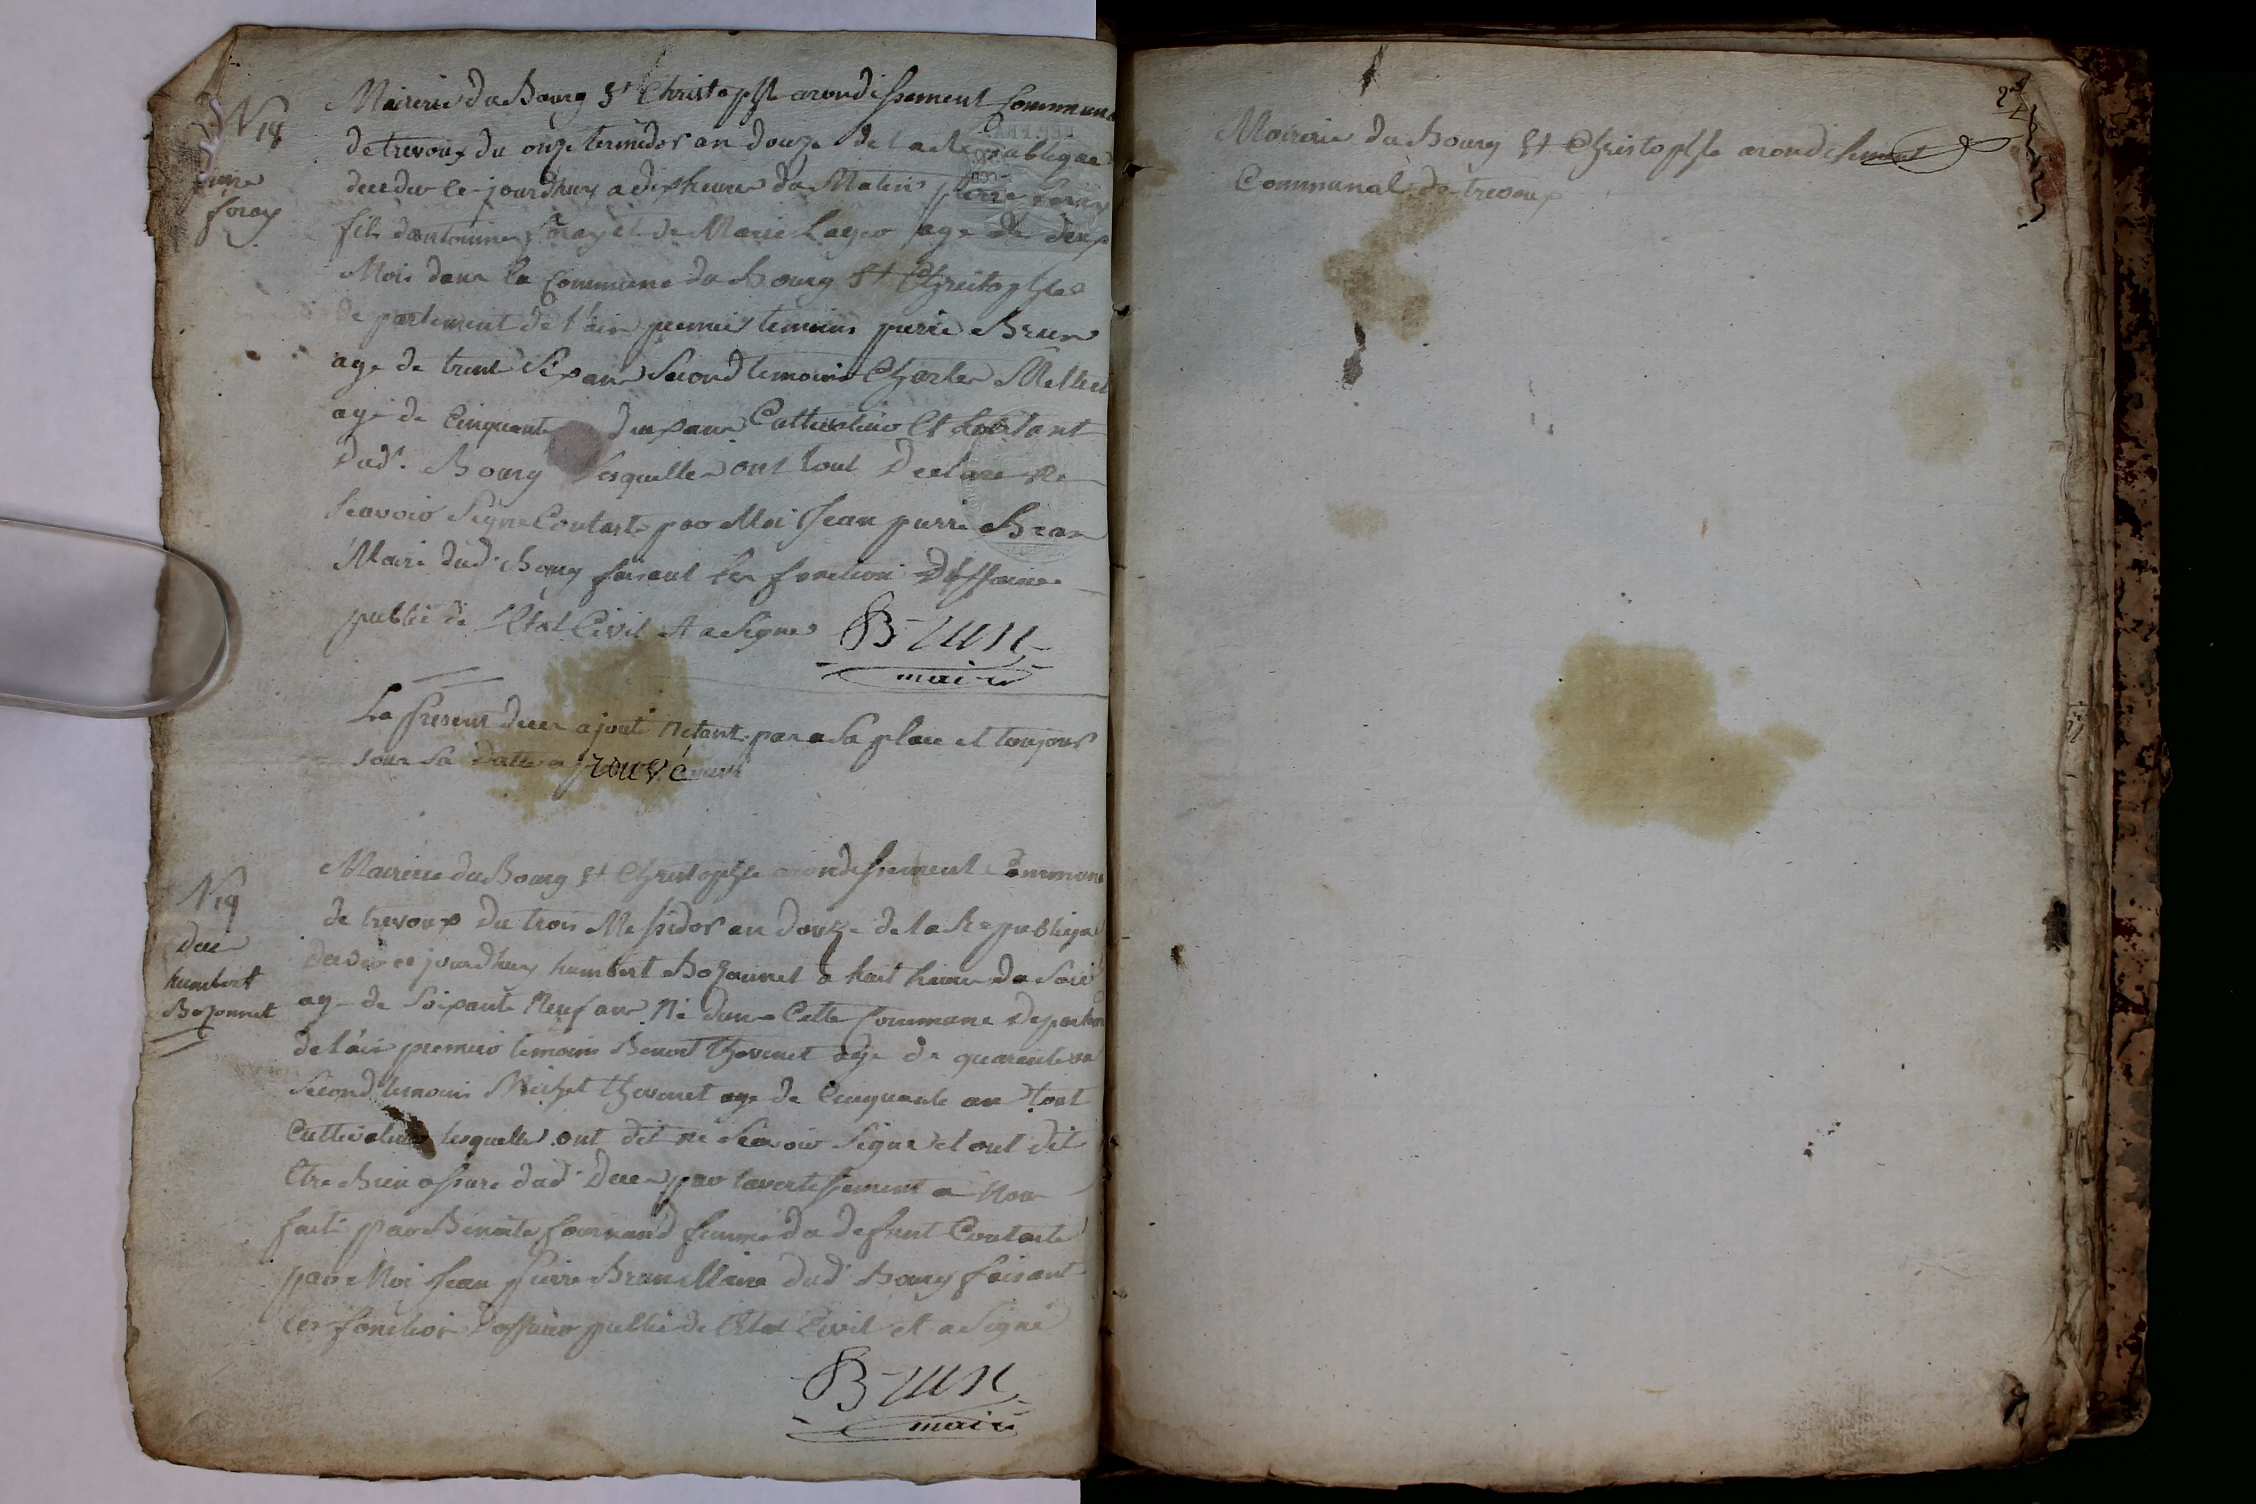 Mairerie du Bourg St Christophle arondissement Communal
N 18
de trevoux du onze termidor an douze de la Republique
decedes ce jourdhuy a dix heures du Matin pierre foray
pierre
foray
fils dantoinne foray et de Marie age de deux
Mois dans la Commune du Bourg St Christophle
departement de l'ain premier temoins pierre Brun
age de trente Six ans Second temoins Charles
age de Cinquante deux ans Cultivateur Et habitant
dud. Bourg lesquelles ont tout Declare ne
Scavoir Signe Contaste par Moi Jean pierre Brun
Maire dud. Bourg faisant les fonction Doffcier
public de l'Etat Civil et a Signe Brun
maire
Le present deces ajoute netant pas a sa place et toujours
sous sa datte aprouvé
Mairerie du Bourg St Christophle arondissement Commun
N 19
de trevoux du trois Messidor an douze de la Republique
deces
humbert
Bozonnet
decedes ce jourdhuy humbert Bozonnet a huit heures du Soir
age de Soixante Neuf ans Né dans Cette Commune Departem
de l'ain premier temoins Benoit thevenet age de quarante
Second temoins Michel thevenet age de Cinquante an tout
Cultivateur lesquelles ont dit ne Scavoir Signe et ont dit
Etre Bien assure dud. Deces par lavertissement a Nous
fait par Benoite femme du defunt Contaste
par Moi Jean pierre Brun Maire dud. Bourg faisant
les fonction doffcier public de l'Etat Civil et a Signé
Brun
maire
Mairerie du Bourg St Christophle arondissement
Communal de trevoux